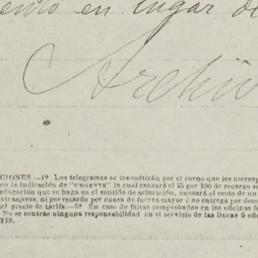 ento en lugar de
Archiv
CIONES.—1ª Los telegramas se trasmitirán por el turno que les corresp
en la indicación de "URGENTE" la cual causará el 25 por 100 de recargo s
educación que se haga en el sentido de aclaración, causará el costo de un
extranjeros, ni por retardo por causa de fuerza mayor ó no entrega por dom
el precio de tarifa.—5ª En caso de faltas comprobadas en las oficinas fe
No se contrae ninguna responsabilidad en el servicio de las líneas ú ofic
TIS.